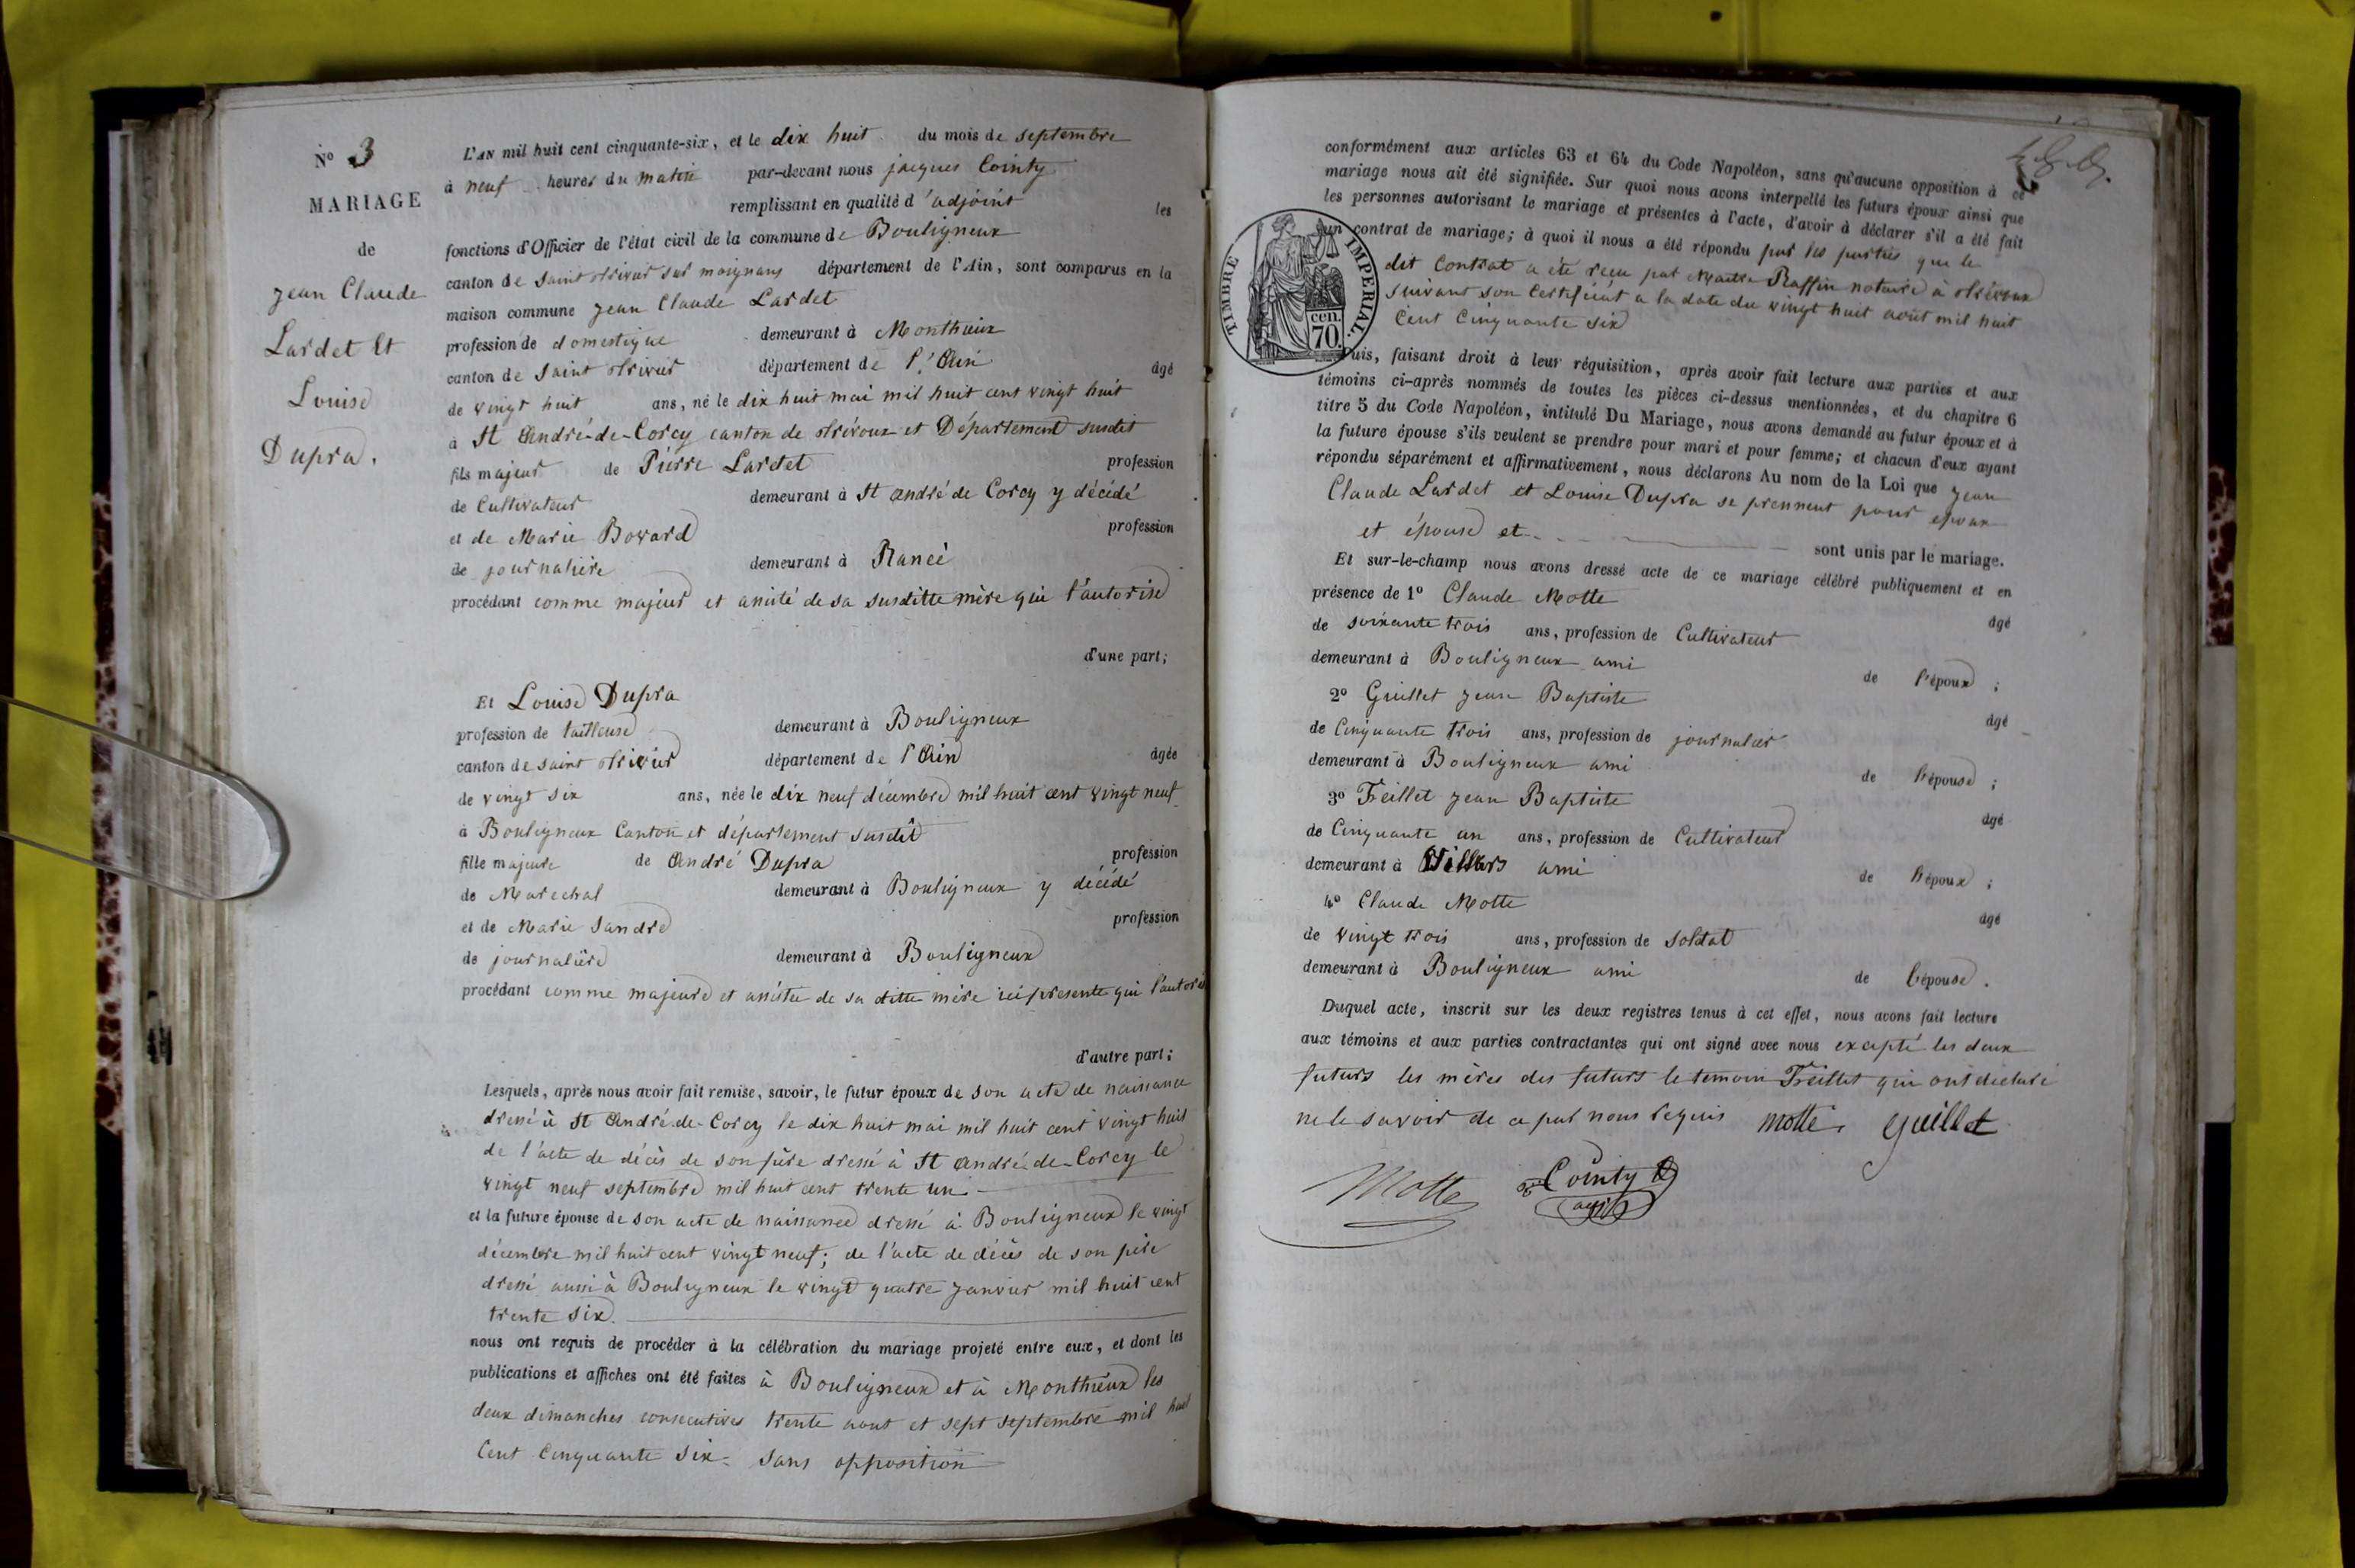 N° 3
MARIAGE
de
Jean Claude
Lardet Et
Louise
Dupra.
L'AN mil huit cent cinquante-six, et le dix huit du mois de septembre
à neuf heures du matin par-devant nous jacques Cointy
remplissant en qualité d'adjoint les
fonctions d'Officier de l'état civil de la commune de Bouligneux
canton de saint trivier sur moignans département de l'Ain, sont comparus en la
maison commune Jean Claude Lardet
profession de domestique demeurant à Monthieux
canton de saint trivier département de l'Ain âgé
de vingt huit ans, né le dix huit mai mil huit cent vingt huit
à St André-de-Corcy canton de trévoux et Département susdit
fils majeur de Pierre Lardet profession
de Cultivateur demeurant à St andré de Corcy y décédé
et de Marie Bovard profession
de journalière demeurant à Rancé
procédant comme majeur et assisté de sa susditte mère qui l'autorise
d'une part;
Et Louise Dupra
profession de tailleuse demeurant à Bouligneux
canton de saint trivier département de l'Ain âgée
de vingt six ans, née le dix neuf décembre mil huit cent vingt neuf
à Bouligneux Canton et département susdit
fille majeure de André Dupra profession
de Marechal demeurant à Bouligneux y décédé
et de Marie Sandre profession
de journalière demeurant à Bouligneux
procédant comme majeure et assistée de sa ditte mère ici présente qui l'autorise
d'autre part;
Lesquels, après nous avoir fait remise, savoir, le futur époux de son acte de naissance
dressé à St André-de-Corcy le dix huit mai mil huit cent vingt huit
de l'acte de décès de son père dressé à St André-de-Corcy le
vingt neuf septembre mil huit cent trente un
et la future épouse de son acte de naissance dressé à Bouligneux le vingt
décembre mil huit cent vingt neuf; de l'acte de décès de son père
dressé aussi à Bouligneux le vingt quatre janvier mil huit cent
trente six.
nous ont requis de procéder à la célébration du mariage projeté entre eux, et dont les
publications et affiches ont été faites à Bouligneux et à Monthieux les
deux dimanches consecutives trente aout et sept septembre mil huit
Cent Cinquante six sans opposition
conformément aux articles 63 et 64 du Code Napoléon, sans qu'aucune opposition à ce
mariage nous ait été signifiée. Sur quoi nous avons interpellé les futurs époux ainsi que
les personnes autorisant le mariage et présentes à l'acte, d'avoir à déclarer s'il a été fait
un contrat de mariage; à quoi il nous a été répondu par les parties que le
dit Contrat a été reçu par Maitre Raffin notaire à trévoux
suivant son Certificat a la date du vingt huit août mil huit
Cent Cinquante six
TIMBRE IMPERIAL.
70 cen.
Puis, faisant droit à leur réquisition, après avoir fait lecture aux parties et aux
témoins ci-après nommés de toutes les pièces ci-dessus mentionnées, et du chapitre 6
titre 5 du Code Napoléon, intitulé Du Mariage, nous avons demandé au futur époux et à
la future épouse s'ils veulent se prendre pour mari et pour femme; et chacun d'eux ayant
répondu séparément et affirmativement, nous déclarons Au nom de la Loi que Jean
Claude Lardet et Louise Dupra se prennent pour epoux
et épouse et sont unis par le mariage.
Et sur-le-champ nous avons dressé acte de ce mariage célébré publiquement et en
présence de 1° Claude Motte âgé
de soixante trois ans, profession de Cultivateur
demeurant à Bouligneux ami de l'époux;
2° Guillet Jean Baptiste âgé
de Cinquante trois ans, profession de journalier
demeurant à Bouligneux ami de l'épouse;
3° Treillet Jean Baptiste âgé
de Cinquante un ans, profession de Cultivateur
demeurant à Villars ami de l'époux;
4° Claude Motte âgé
de vingt trois ans, profession de soldat
demeurant à Bouligneux ami de l'épouse.
Duquel acte, inscrit sur les deux registres tenus à cet effet, nous avons fait lecture
aux témoins et aux parties contractantes qui ont signé avec nous excepté les deux
futurs les mères des futurs le temoin Treillet qui ont déclaré
ne le savoir de ce par nous requis motte guillet
Motte Cointy
adj